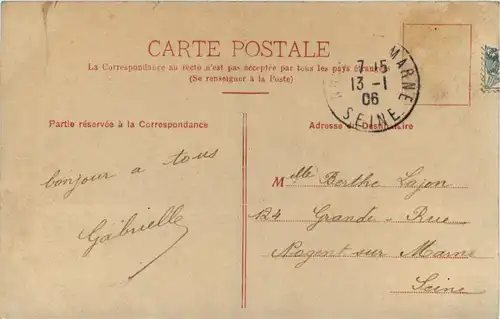 CARTE POSTALE
La Correspondance au recto n'est pas acceptée par tous les pays étrangers
(Se renseigner à la Poste)
MARNE
7-15
13-1
06
SEINE
Partie réservée à la Correspondance
Adresse du Destinataire
bonjour a tous
Gabrielle
Melle Berthe Lajon
124 Grande-Rue
Nogent sur Marne
Seine